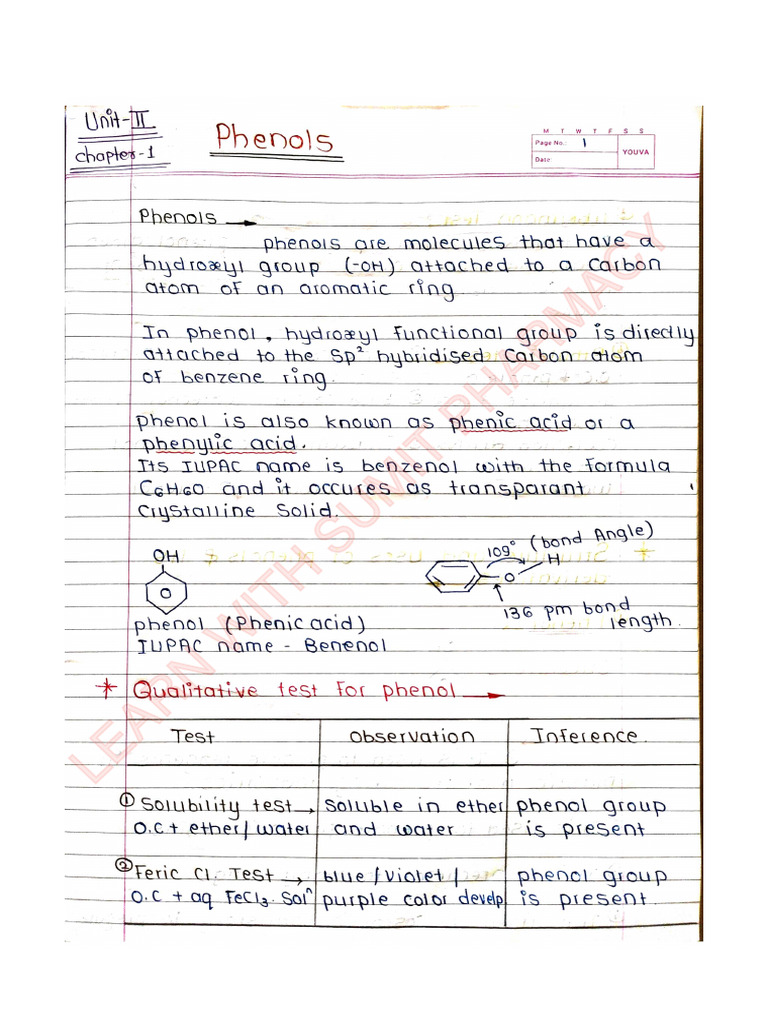 Unit-II
Chapter-1
Phenols
M T W T F S S
Page No.: 1
Date:
YOUVA
Phenols →
phenols are molecules that have a
hydroxyl group (-OH) attached to a carbon
atom of an aromatic ring
In phenol, hydroxyl functional group is directly
attached to the Sp² hybridised carbon atom
of benzene ring.
phenol is also known as phenic acid or a
phenylic acid.
Its IUPAC name is benzenol with the formula
C6H6O and it occures as transparant
crystalline solid.
OH
phenol (Phenic acid)
IUPAC name - Benenol
109° (bond Angle)
O H
136 pm bond
length.
* Qualitative test for phenol →
Test Observation Inference.
① Solubility test → Soluble in ether phenol group
O.C + ether/water and water is present
② Feric Cl. Test → blue/violet/ phenol group
O.C + aq FeCl3. Solⁿ purple color develp is present.
LEARN WITH SUMIT PHARMACY